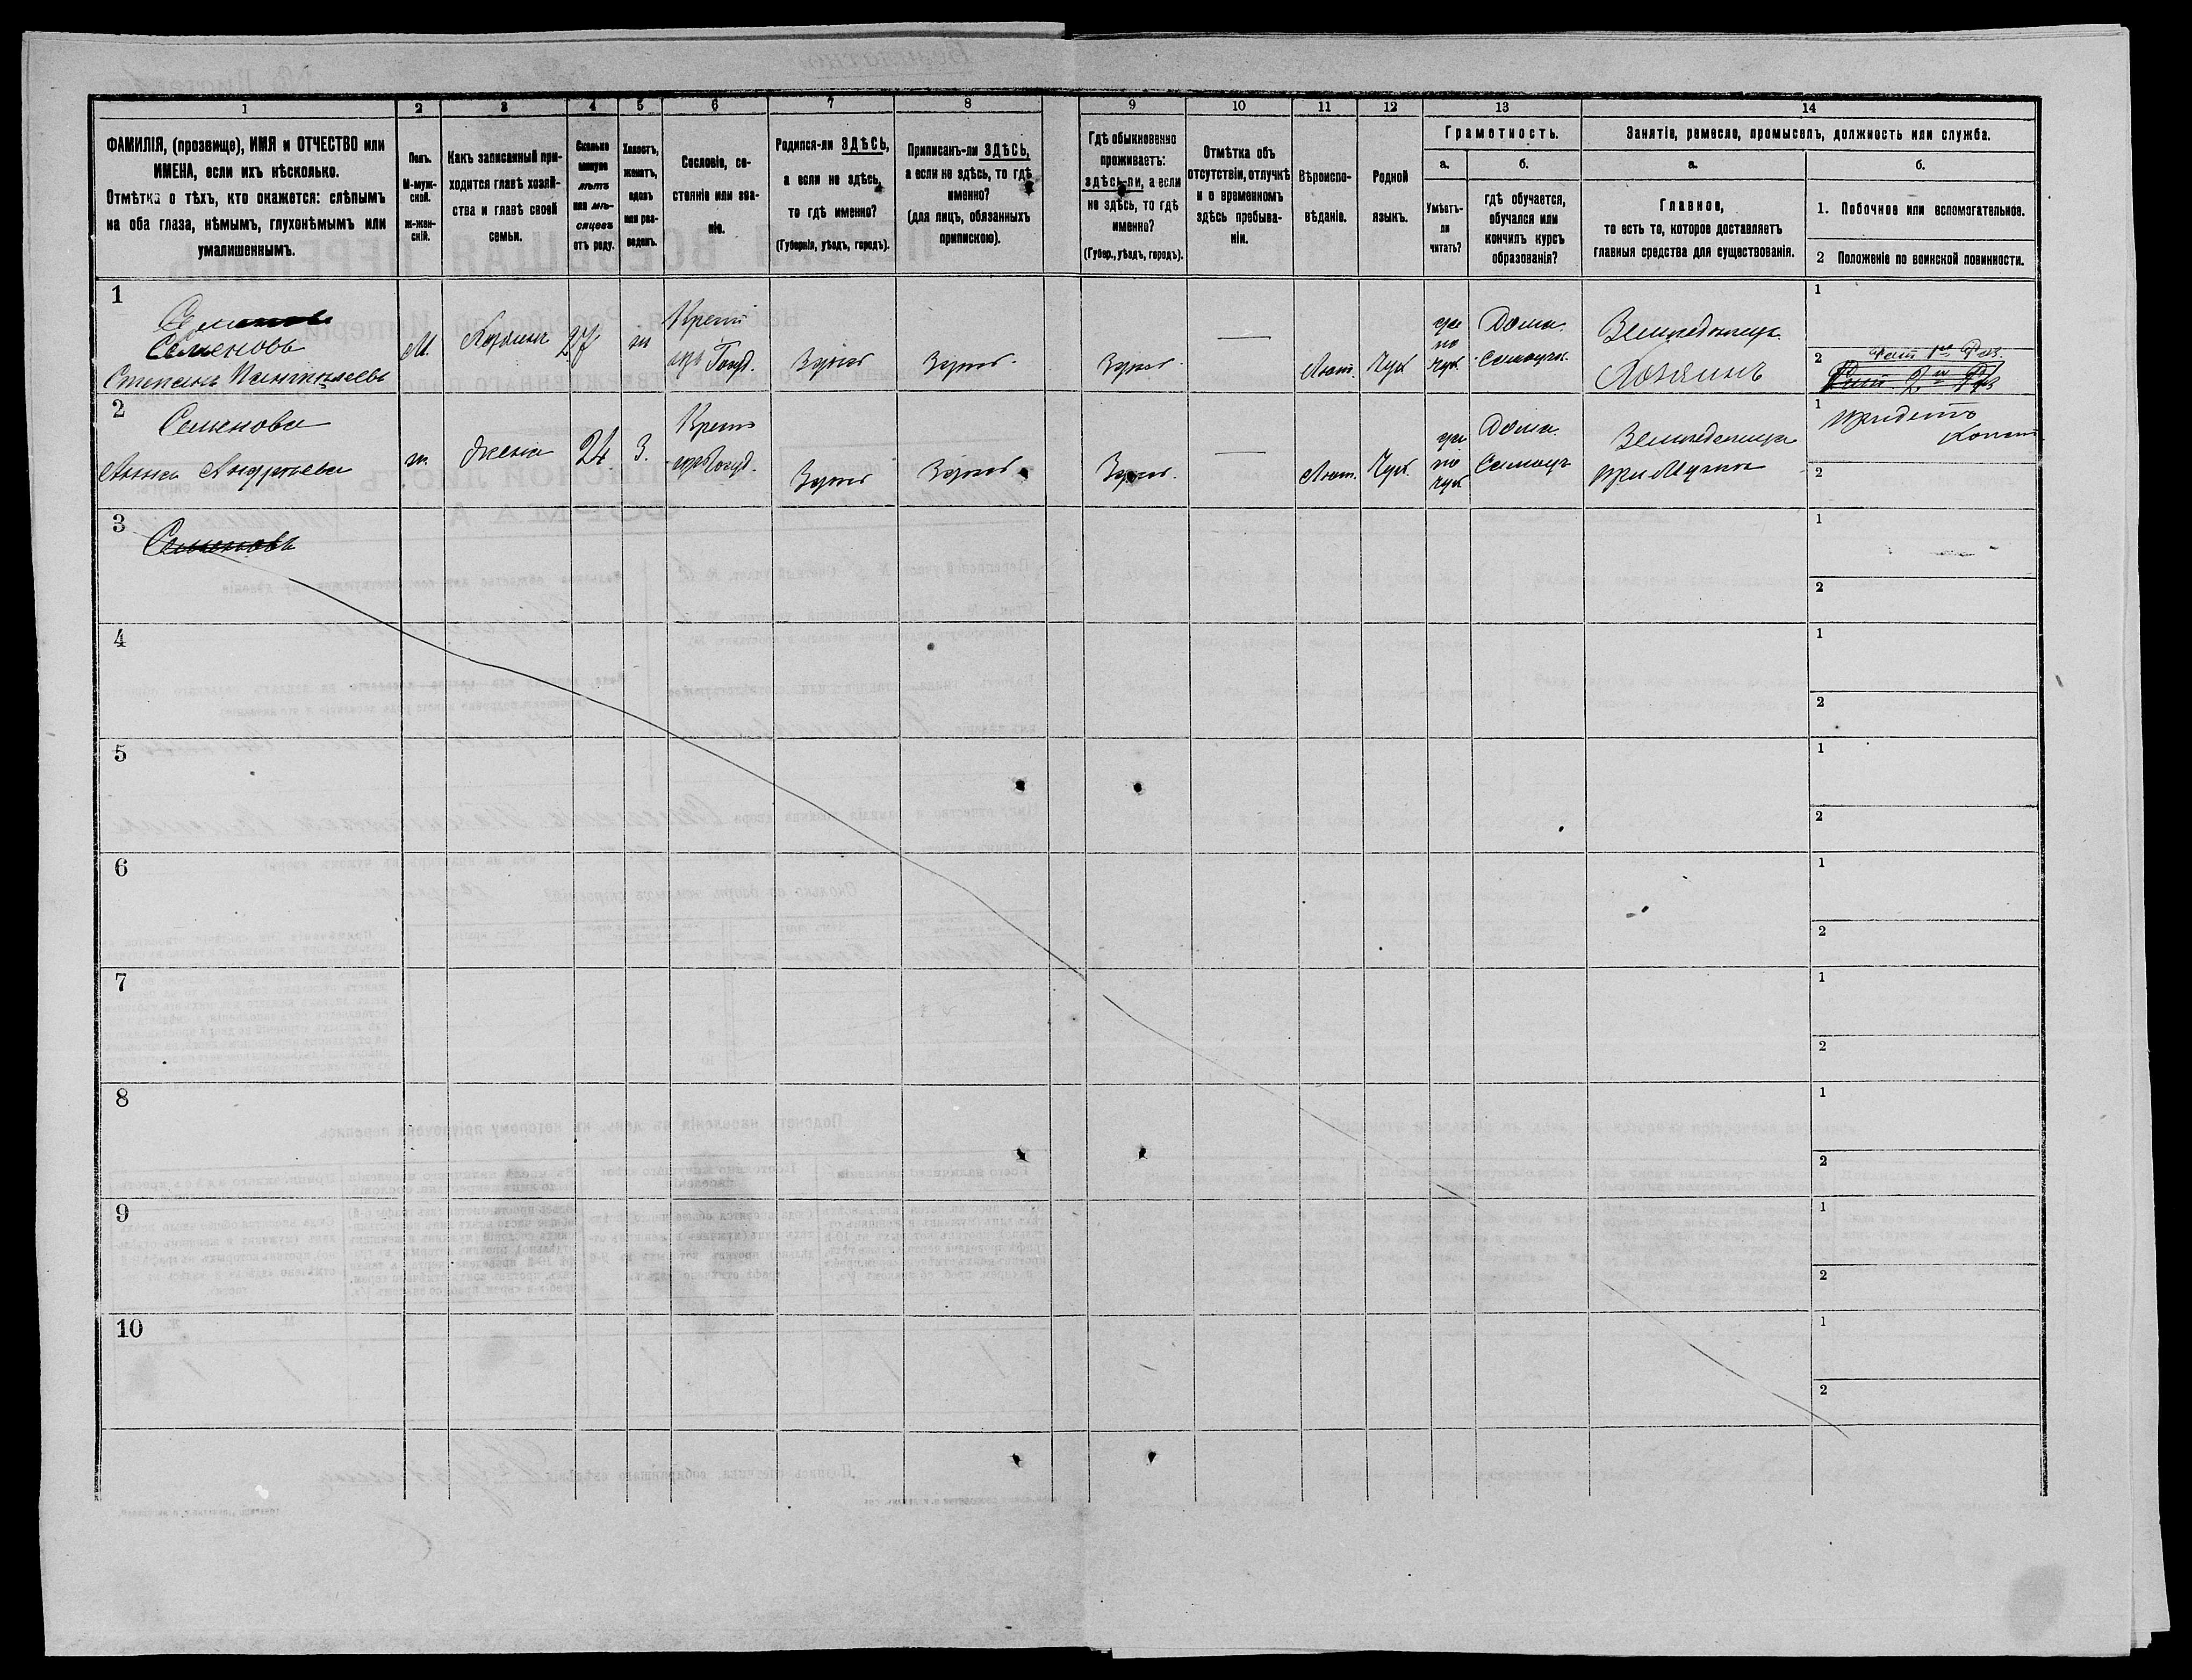 1
2
3
4
5
6
7
8
9
10
11
12
13
14
ФАМИЛІЯ, (прозвище), ИМЯ и ОТЧЕСТВО или
ИМЕНА, если ихъ нѣсколько.
Отмѣтка о тѣхъ, кто окажется: слѣпымъ
на оба глаза, нѣмымъ, глухонѣмымъ или
умалишеннымъ.
Полъ.
М-муж-
ской.
Ж-жен-
скій.
Какъ записанный при-
ходится главѣ хозяй-
ства и главѣ своей
семьи.
Сколько
минуло
лѣтъ
или мѣ-
сяцевъ
отъ роду.
Холостъ,
женатъ,
вдовъ
или раз-
веденъ.
Сословіе, со-
стояніе или зва-
ніе.
Родился-ли ЗДѢСЬ,
а если не здѣсь,
то гдѣ именно?
(Губернія, уѣздъ, городъ).
Приписанъ-ли ЗДѢСЬ,
а если не здѣсь, то гдѣ
именно?
(для лицъ, обязанныхъ
припискою).
Гдѣ обыкновенно
проживаетъ:
здѣсь-ли, а если
не здѣсь, то гдѣ
именно?
(Губер., уѣздъ, городъ).
Отмѣтка объ
отсутствіи, отлучкѣ
и о временномъ
здѣсь пребыва-
ніи.
Вѣроиспо-
вѣданіе.
Родной
языкъ.
Грамотность.
а.
Умѣетъ-
ли
читать?
б.
гдѣ обучается,
обучался или
кончилъ курсъ
образованія?
Занятіе, ремесло, промыселъ, должность или служба.
а.
Главное,
то есть то, которое доставляетъ
главныя средства для существованія.
б.
1. Побочное или вспомогательное.
2 Положеніе по воинской повинности.
1
Семеновъ
Степанъ
М.
Хозяинъ
27
ж
Крест
Госуд.
Здѣсь
Здѣсь
Здѣсь
—
Лют.
Чух
да
по
чух
Дома.
Самоучк.
Земледѣлецъ
Хозяинъ
1
2
Рат 1го Раз.
2
Семенова
Анна Андреева
ж.
Жена
24
З.
Крест
Госуд.
Здѣсь
Здѣсь
Здѣсь.
—
Лют.
Чух.
да
по
чух
Дома.
Самоуч
Земледѣлица
при Мужѣ
1
2
3
Семеновъ
1
2
4
1
2
5
1
2
6
1
2
7
1
2
8
1
2
9
1
2
10
1
2